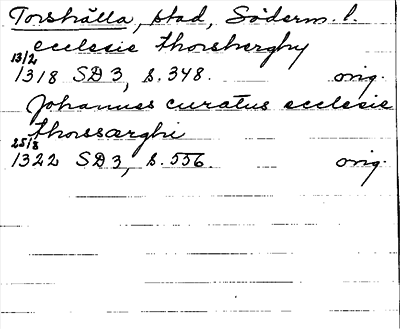 Torshälla, stad, Söderm. l.
ecclesie Thorsherghy
13/2
1318 SD 3, s. 348. orig.
Johannes curatus ecclesie
Thorssærghi
25/3
1322 SD 3, s. 556. orig.